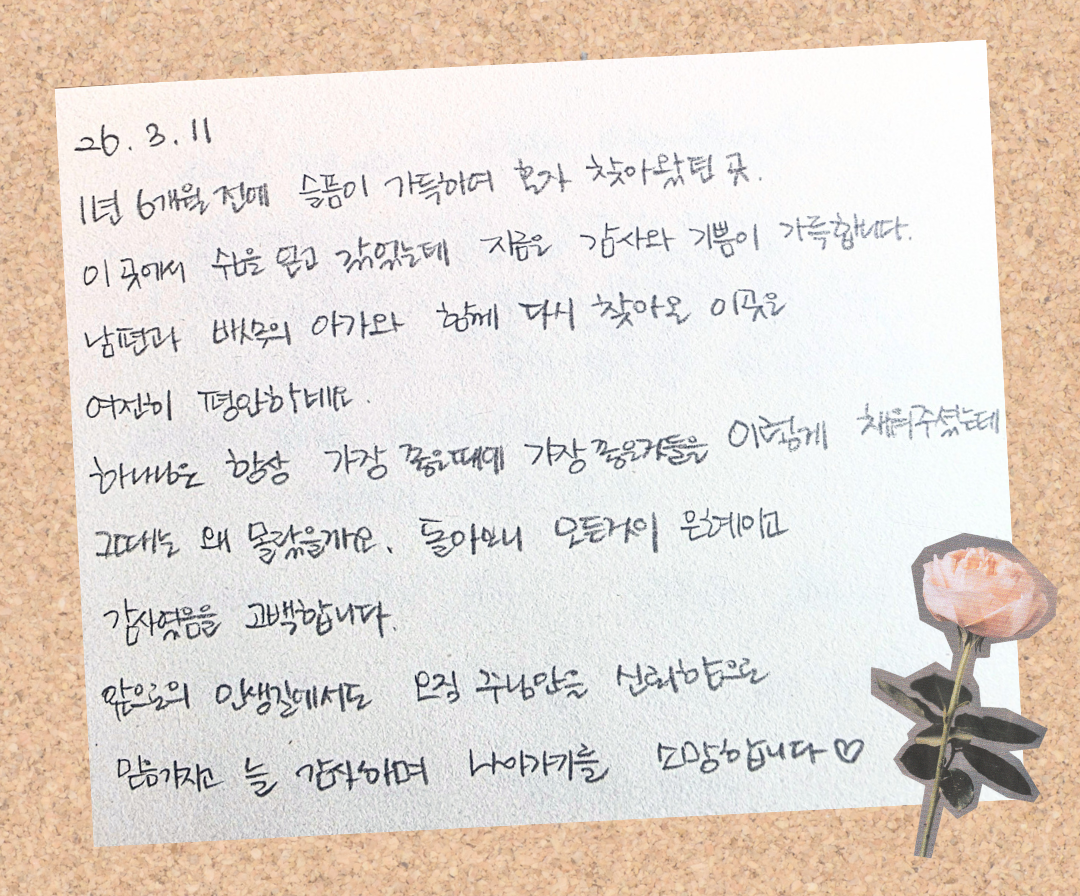 26. 3. 11
1년 6개월 전에 슬픔이 가득하여 혼자 찾아왔던 곳.
이 곳에서 쉼을 얻고 갔었는데 지금은 감사와 기쁨이 가득합니다.
남편과 뱃속의 아가와 함께 다시 찾아온 이곳은
여전히 평안하네요.
하나님은 항상 가장 좋은때에 가장 좋은것들을 이렇게 채워주셨는데
그때는 왜 몰랐을까요. 돌아보니 모든것이 은혜이고
감사였음을 고백합니다.
앞으로의 인생길에서도 오직 주님만을 신뢰함으로
믿음가지고 늘 감사하며 나아가기를 소망합니다♡